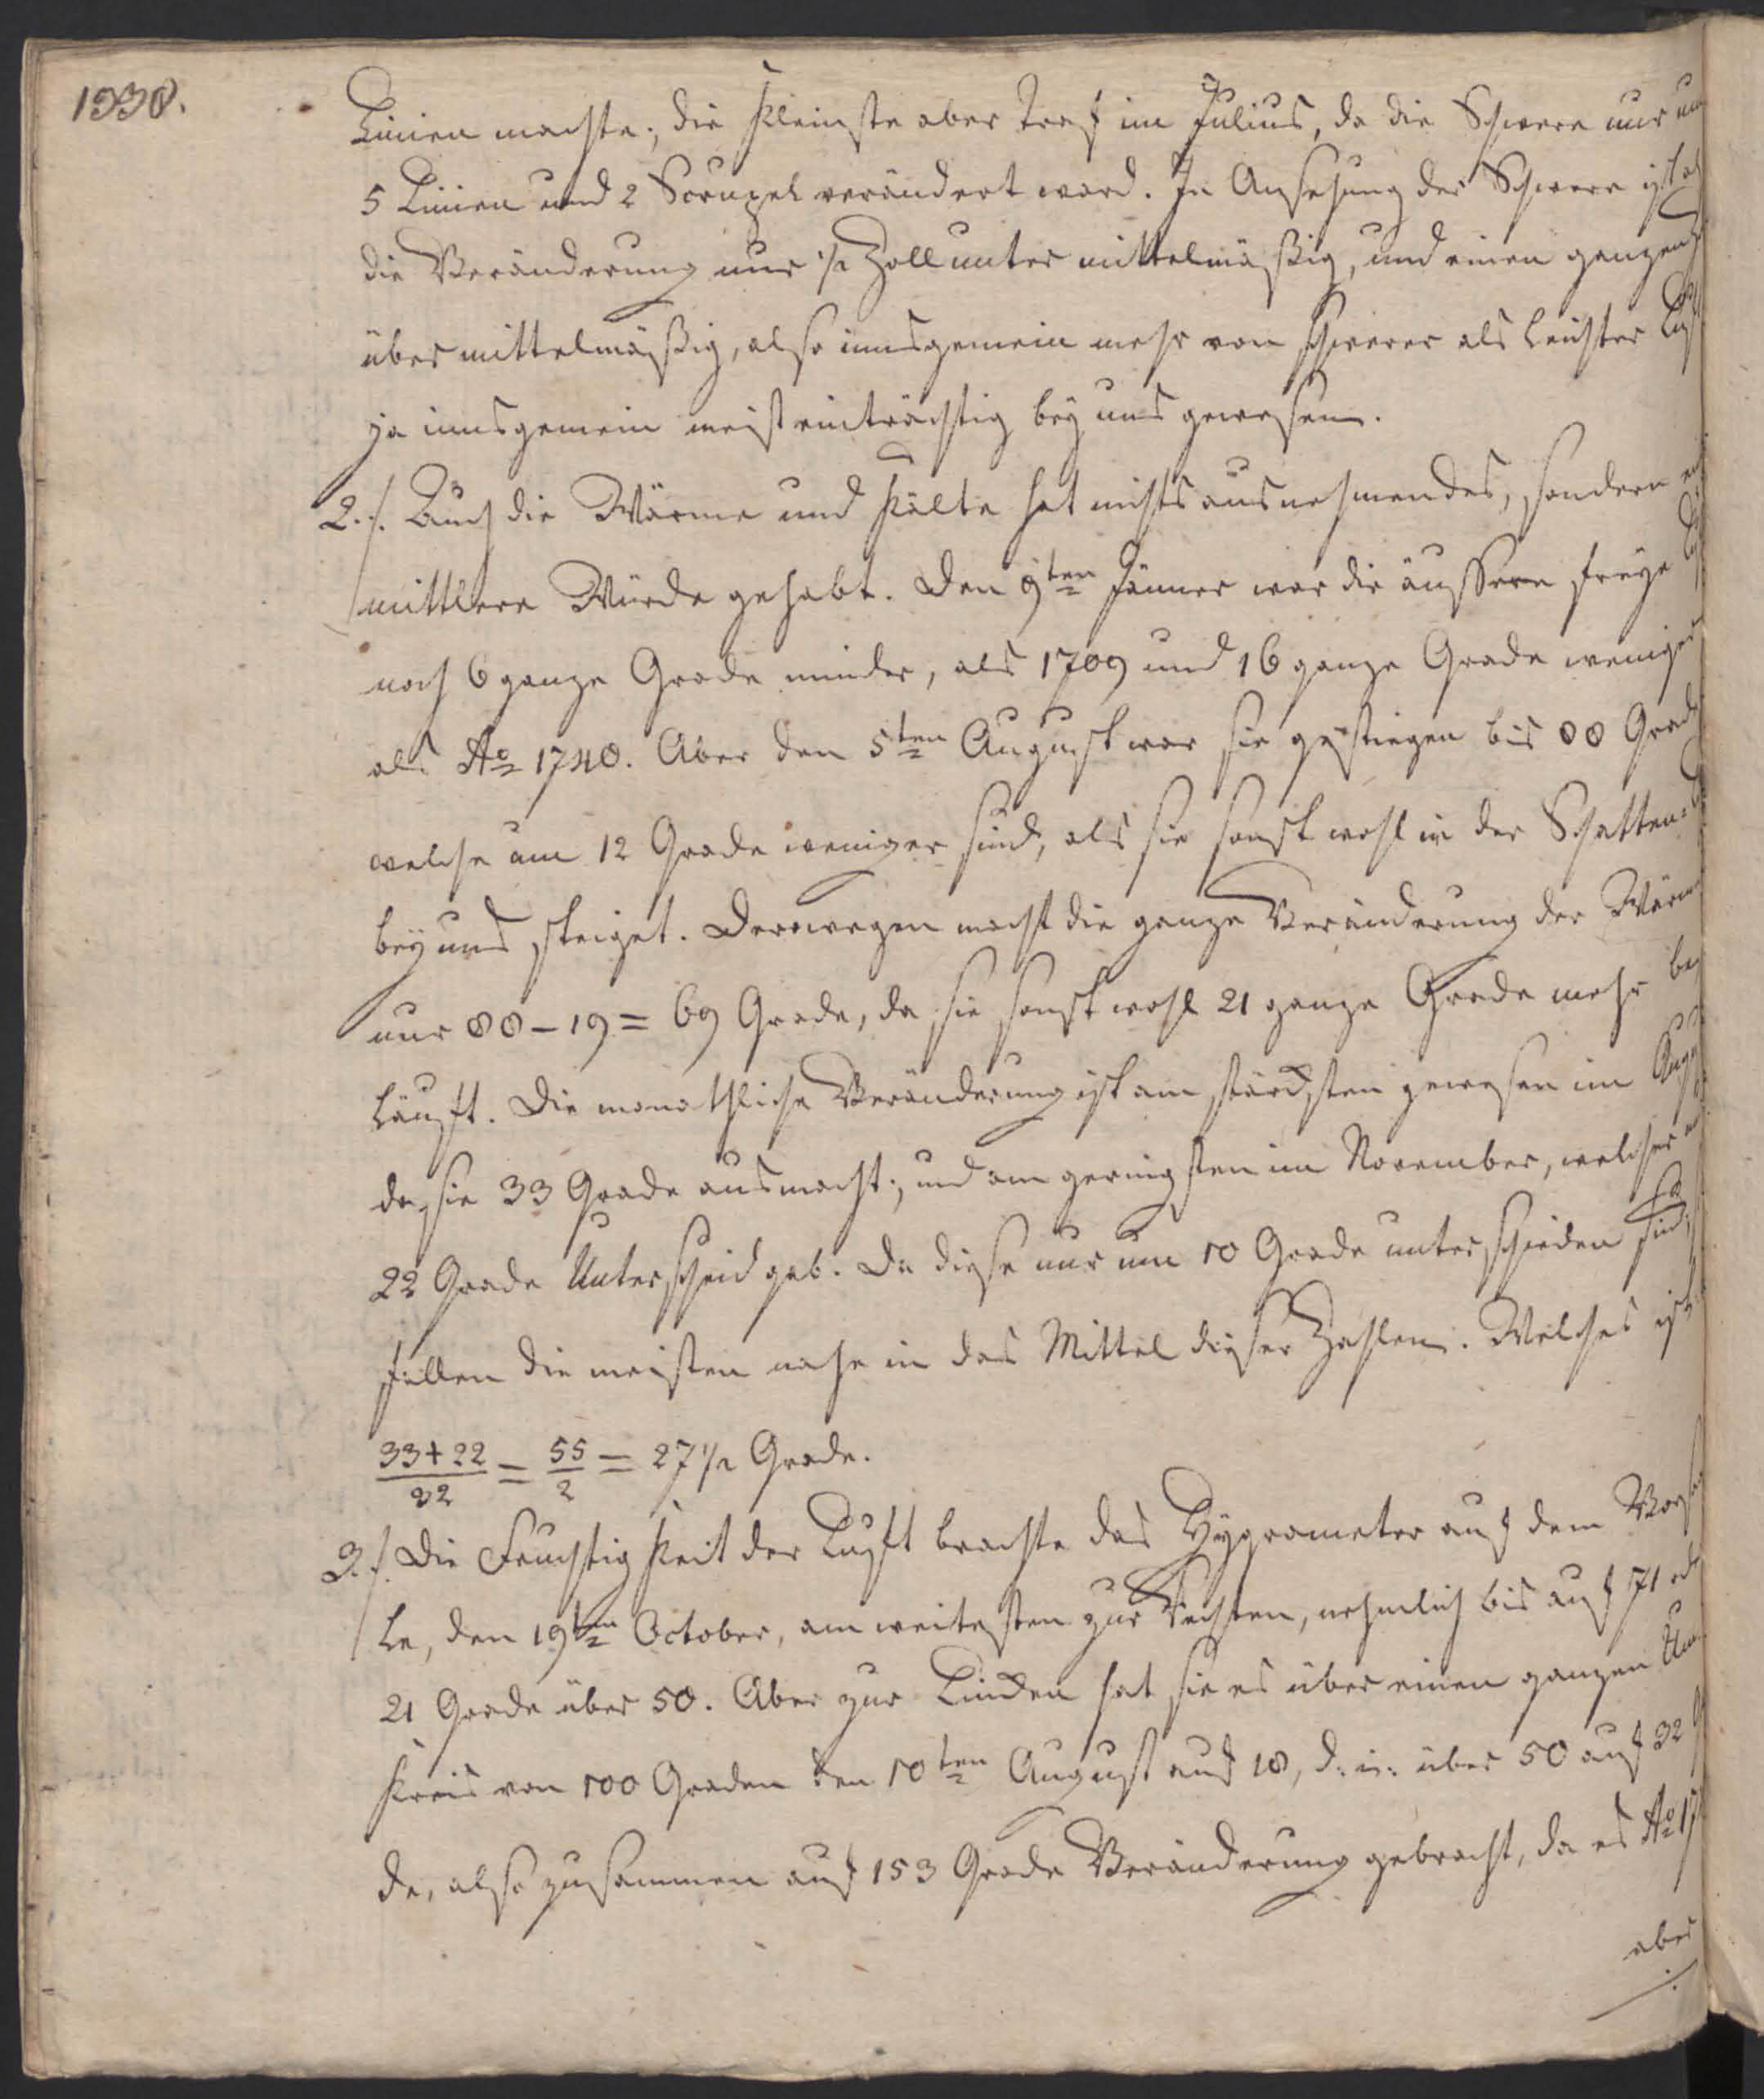 1330.
Linien machte; die kleinste aber traf im Julius, da die Schwere nur um
5 Linien und 2 Scrupel verändert ward. In Ansehung der Schwere ist
die Veränderung nur ½ Zoll unter mittelmäßig, und einen ganzen
über mittelmäßig, also innsgemein mehr von schwerer als leichter
ja innsgemein meist einträchtig bey uns gewesen.
2./. Auch die Wärme und Kälte hat nichts ausnehmendes, sondern
mittlere Würde gehabt. Den 9ten Jänner war die äussere freye
noch 6 ganze Grade minder, als 1709 und 16 ganze Grade weniger
als Ao 1740. Aber den 5ten August war sie gestiegen bis 88 Grade
welche um 12 Grade weniger sind, als sie sonst wohl in der Schatten-
bey uns steiget. Derowegen macht die ganze Veränderung der Wärme
nur 88 – 19 = 69 Grade, da sie sonst wohl 21 ganze Grade mehr be
läufft. Die monathliche Veränderung ist am stärcksten gewesen im
da sie 33 Grade ausmacht; und am geringsten im November, welcher
22 Grade Unterscheid gab. Da diese nur um 10 Grade unterschieden sind,
fallen die meisten nahe in das Mittel dieser Zahlen. Welches ist
33+22/22 = 55/2 = 27½ Grade.
3./. Die Feuchtigkeit der Luft brachte das Hygrometer auf dem
le, den 19ten October, am weitesten zur Rechten, nehmlich bis auf 71
21 Grade über 50. Aber zur Lincken hat sie es über einen ganzen
Kreis von 100 Graden den 10ten August auf 18, d. i. über 50 auf 32
de, also zusammen auf 153 Grade Veränderung gebracht, da es Ao 17
aber